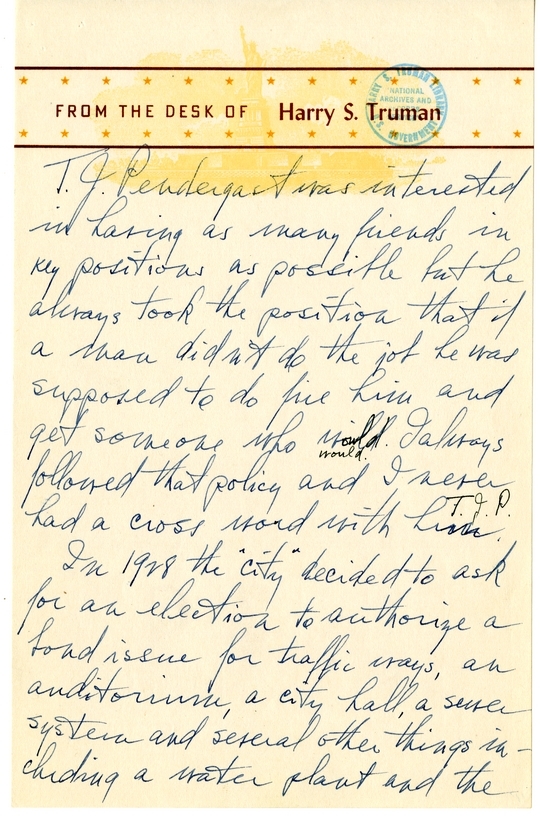 FROM THE DESK OF Harry S. Truman
HARRY S. TRUMAN LIBRARY
NATIONAL
ARCHIVES AND
U.S. GOVERNMENT
T. J. Pendergast was interested
in having as many friends in
key positions as possible but he
always took the position that if
a man did n't do the job he was
supposed to do fire him and
get someone who would. I always
would.
followed that policy and I never
T. J. P.
had a cross word with him.
In 1928 the "city" decided to ask
for an election to authorize a
bond issue for traffic ways, an
auditorium, a city hall, a sewer
system and several other things in-
cluding a water plant and the